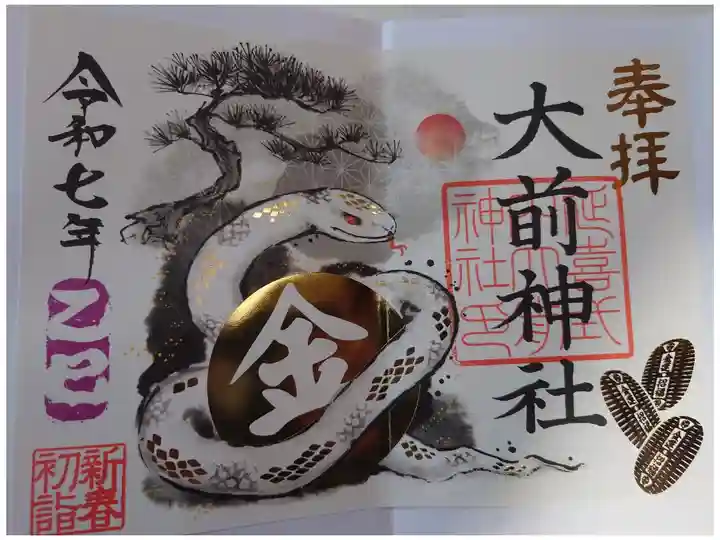 奉拝
大前神社
延喜式
大前
神社印
金
令和七年
乙巳
新春
初詣